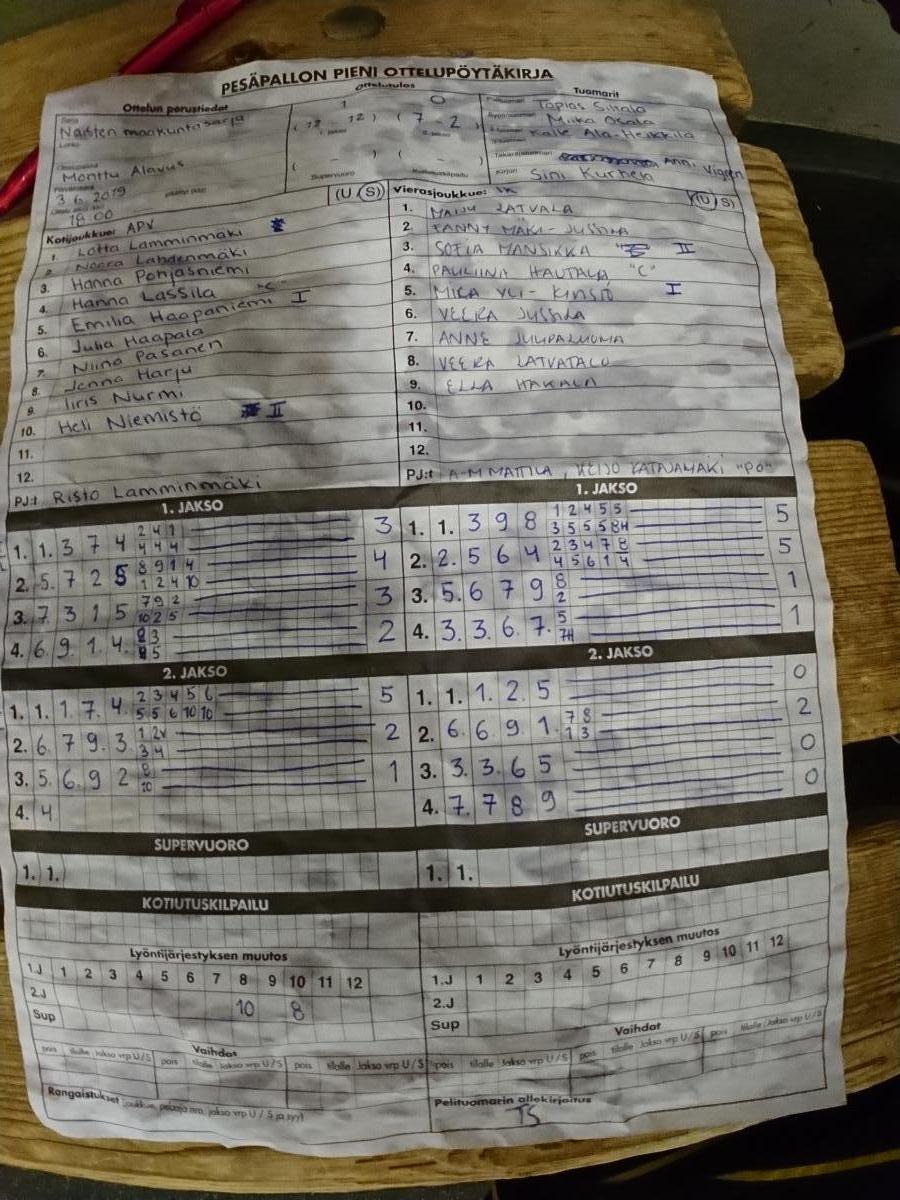 PESÄPALLON PIENI OTTELUPÖYTÄKIRJA
Ottelun perustiedot
Ottelutulos
Tuomarit
Sarja Naisten maakuntasarja
1 0
(12 - 12) (7 - 2)
( - ) ( - )
Supervuoro
Tapias Siltala
Miika Osala
Kalle Ala-Heikkilä
Anni
Sini Kurhela
Monttu Alavus
3.6.2019
18.00
(U (S))
Kotijoukkue: APV
1. Lotta Lamminmäki
2. Noora Lahdenmäki
3. Hanna Pohjasniemi
4. Hanna Lassila "C"
5. Emilia Haapaniemi I
6. Julia Haapala
7. Niina Pasanen
8. Jenna Harju
9. Iiris Nurmi
10. Heli Niemistö II
11.
12.
PJ:t Risto Lamminmäki
Vierasjoukkue:
((U) S)
1. MAIJU LATVALA
2. FANNY MÄKI-JUSSILA
3. SOFIA MANSIKKA II
4. PAULIINA HAUTALA "C"
5. MIKA YLI-KINSTÖ I
6. VEERA JUSSILA
7. ANNE JUUPALUOMA
8. VEERA LATVATALO
9. ELLA HAKALA
10.
11.
12.
PJ:t A-M MATTILA, KEIJO KATAJAMÄKI "PO"
1. JAKSO
1. 1. 3 7 4 2 4 1 3
4 4 4
2. 5. 7 2 5 8 9 1 4 4
1 2 4 10
3. 7 3 1 5 7 9 2 3
10 2 5
4. 6. 9. 1 4. 3 2
5
1. JAKSO
1. 1. 3 9 8 1 2 4 5 5 5
3 5 5 5 8H
2. 2. 5 6 4 2 3 4 7 8 5
4 5 6 1 4
3. 5. 6 7 9 8 1
2
4. 3. 3. 6. 7. 5 1
7H
2. JAKSO
1. 1. 1. 7. 4. 2 3 4 5 6 5
5 5 6 10 10
2. 6. 7 9. 3 1 2V 2
3 4
3. 5. 6. 9 2 8 1
10
4. 4
2. JAKSO
1. 1. 1. 2. 5 0
2. 6. 6 9 1. 7 8 2
1 3
3. 3. 3. 6 5 0
4. 7. 7 8 9 0
SUPERVUORO
1. 1.
SUPERVUORO
1. 1.
KOTIUTUSKILPAILU
KOTIUTUSKILPAILU
Lyöntijärjestyksen muutos
1.J 1 2 3 4 5 6 7 8 9 10 11 12
2.J 10 8
Sup
Lyöntijärjestyksen muutos
1.J 1 2 3 4 5 6 7 8 9 10 11 12
2.J
Sup
Vaihdot
pois tilalle Jakso vrp U/S pois tilalle Jakso vrp U/S pois tilalle Jakso vrp U/S
Vaihdot
pois tilalle Jakso vrp U/S pois tilalle Jakso vrp U/S pois tilalle Jakso vrp U/S
Rangaistukset joukkue, pelaaja nro, jakso vrp U / S ja syy)
Pelituomarin allekirjoitus
TS